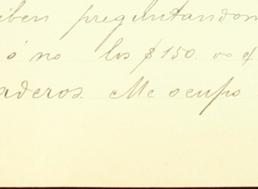 iben preguntandom
ó no los $150. oo q
aderos. Me ocupo